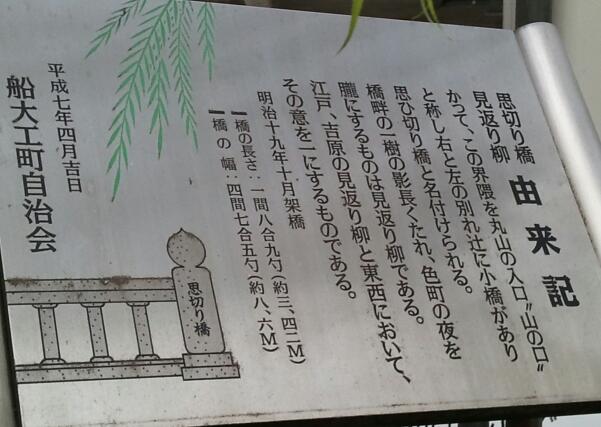 思切り橋
見返り柳
由来記
かつて、この界隈を丸山の入口〝山の口〟
と称し右と左の別れ辻に小橋があり
思ひ切り橋と名付けられる。
橋畔の一樹の影長くたれ、色町の夜を
朧にするものは見返り柳である。
江戸、吉原の見返り柳と東西において、
その意を一にするものである。
明治十九年十月架橋
橋の長さ:一間八合九勺(約三、四二M)
橋の幅:四間七合五勺(約八、六M)
平成七年四月吉日
船大工町自治会
思切り橋